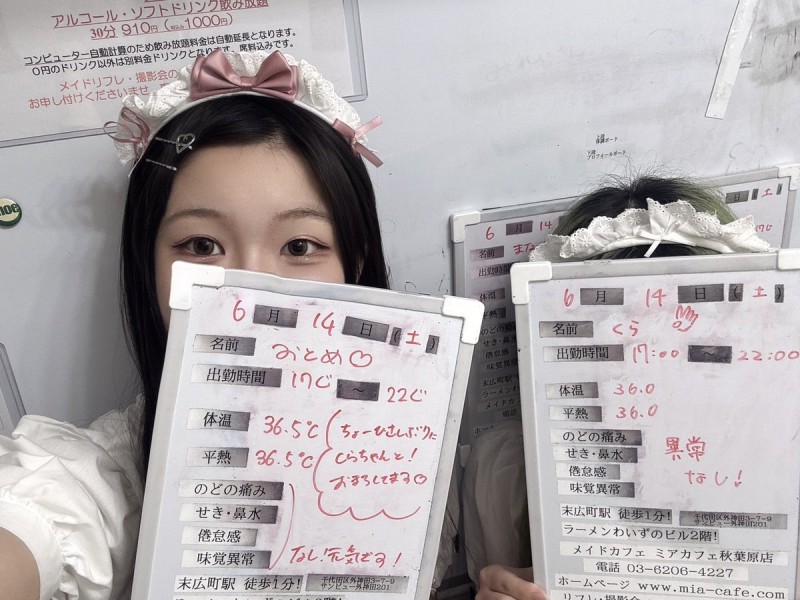 アルコール・ソフトドリンク飲み放題
30分 910円 (税込1000円)
コンピューター自動計算のため飲み放題料金は自動延長となります。
0円のドリンク以外は別料金ドリンクとなります。席料込みです。
メイドリフレ・撮影会の
お申し付けくださいませ
6月14日(土)
名前 おとめ♡
出勤時間 17じ ~ 22じ
体温 36.5℃
平熱 36.5℃
ちょーひさしぶりに
くらちゃんと!
おまちしてます♡
のどの痛み
せき・鼻水
倦怠感
味覚異常
なし!元気です!
末広町駅 徒歩1分!
千代田区外神田3-7-9
サンビュー外神田201
6月14日(土)
名前 くら
出勤時間 17:00 ~ 22:00
体温 36.0
平熱 36.0
のどの痛み
せき・鼻水
倦怠感
味覚異常
異常
なし!
末広町駅 徒歩1分!
千代田区外神田3-7-9
サンビュー外神田201
ラーメンわいずのビル2階!
メイドカフェ ミアカフェ秋葉原店
電話 03-6206-4227
ホームページ www.mia-cafe.com
6月14
日(土)
名前
出勤時間
体温
平熱
のどの痛み
せき・鼻水
倦怠感
味覚異常
末広町駅